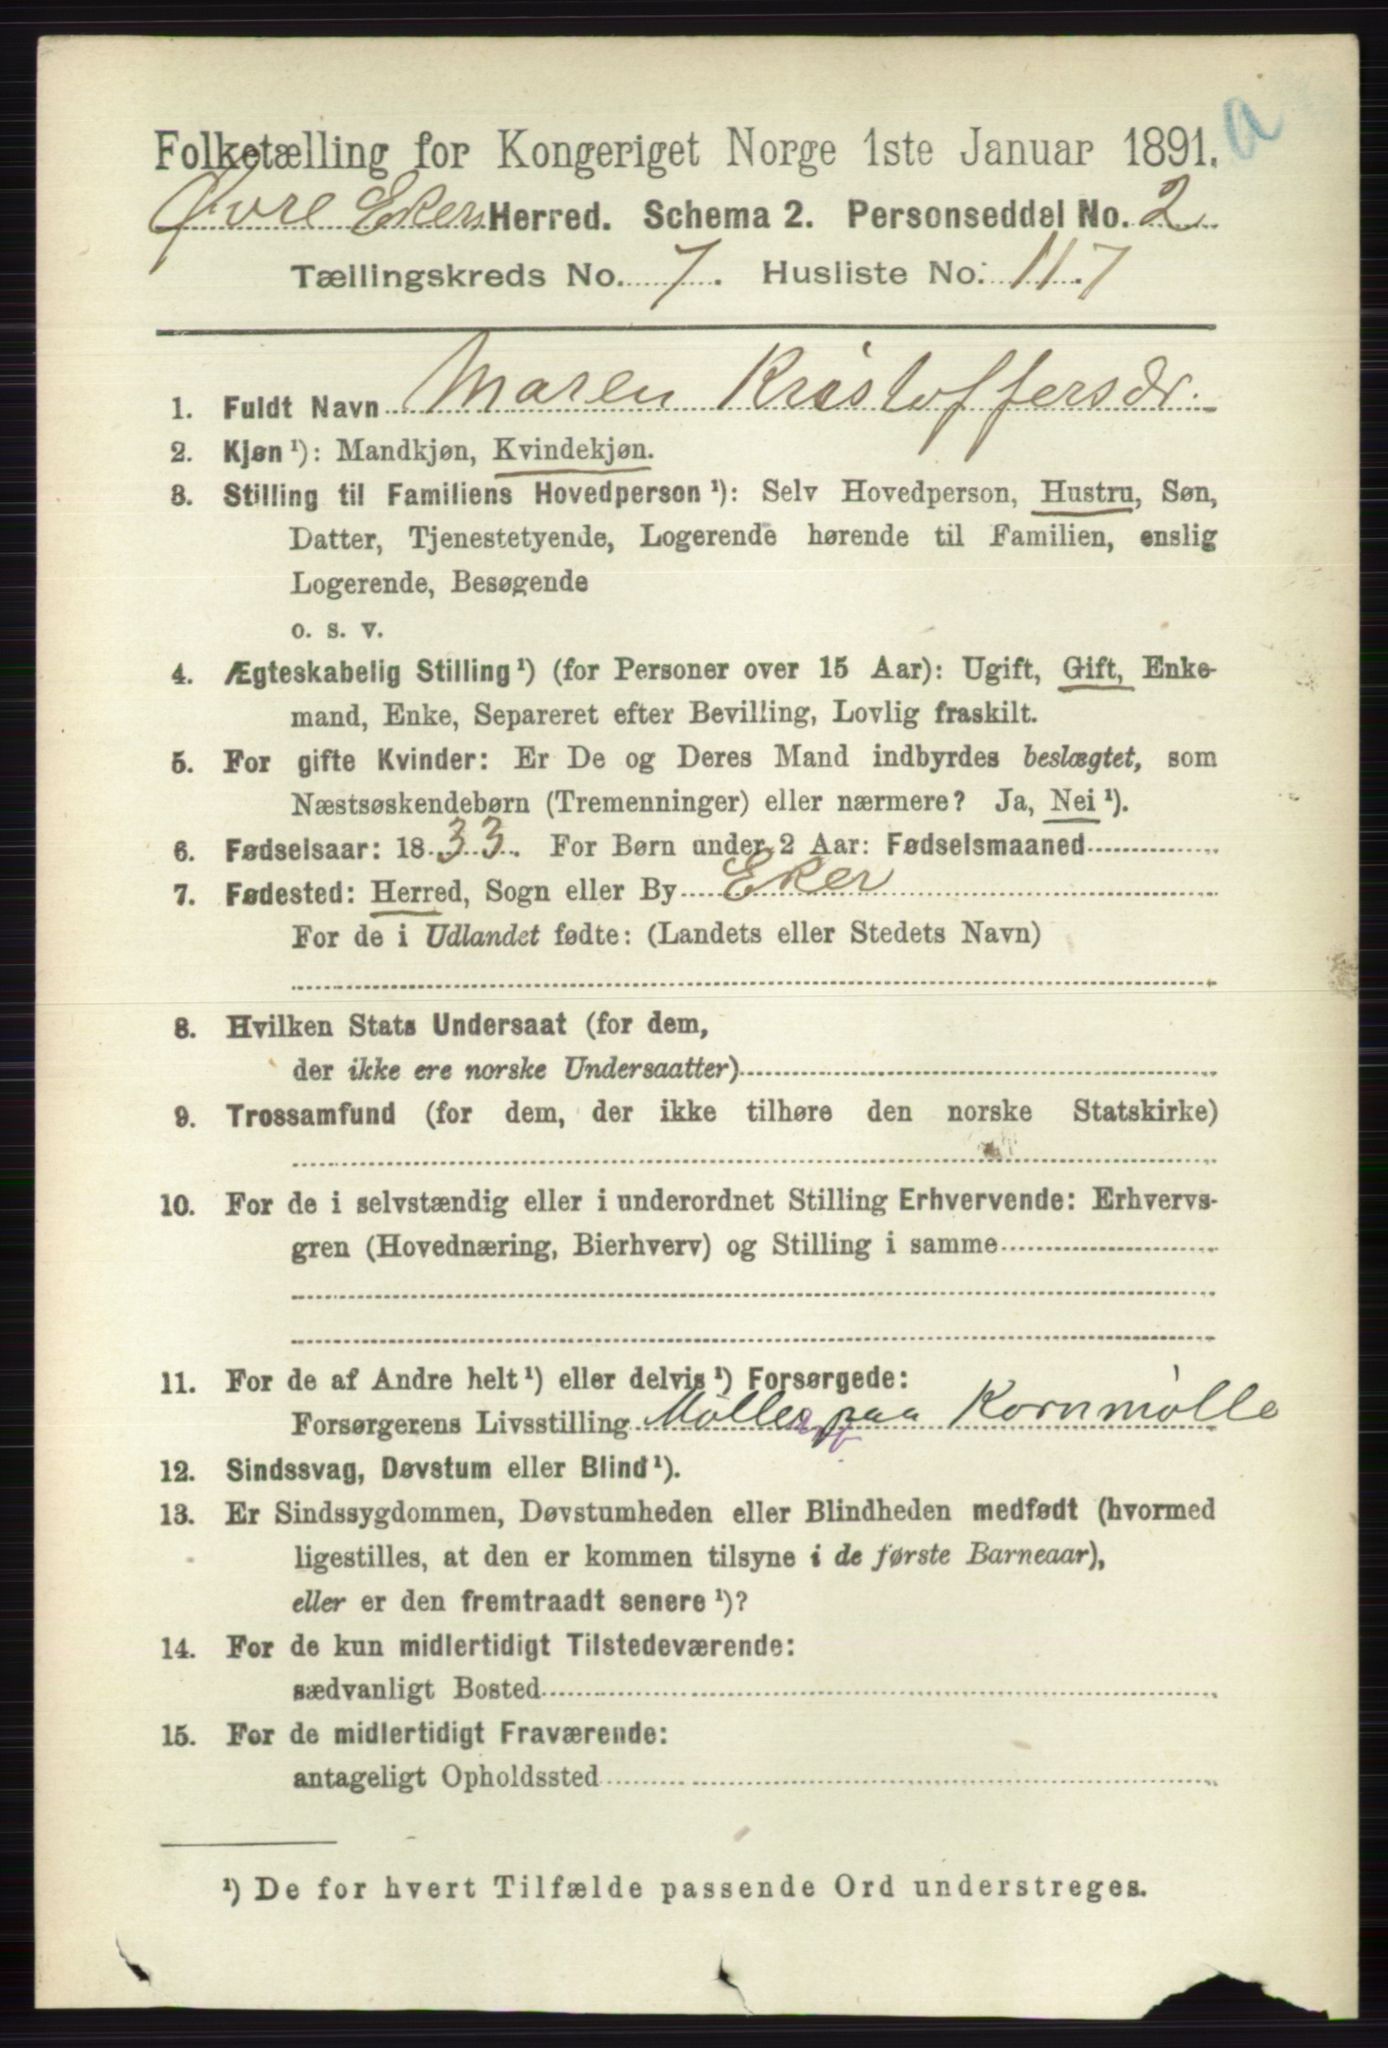 a
Folketælling for Kongeriget Norge 1ste Januar 1891.
Øvre Ekers Herred. Schema 2. Personseddel No. 2
Tællingskreds No. 7. Husliste No. 117
1. Fuldt Navn Maren Kristoffersdr.
2. Kjøn ¹): Mandkjøn, Kvindekjøn.
3. Stilling til Familiens Hovedperson ¹): Selv Hovedperson, Hustru, Søn,
Datter, Tjenestetyende, Logerende hørende til Familien, enslig
Logerende, Besøgende
o. s. v.
4. Ægteskabelig Stilling ¹) (for Personer over 15 Aar): Ugift, Gift, Enke-
mand, Enke, Separeret efter Bevilling, Lovlig fraskilt.
5. For gifte Kvinder: Er De og Deres Mand indbyrdes beslægtet, som
Næstsøskendebørn (Tremenninger) eller nærmere? Ja, Nei ¹).
6. Fødselsaar: 1833. For Børn under 2 Aar: Fødselsmaaned
7. Fødested: Herred, Sogn eller By Eker
For de i Udlandet fødte: (Landets eller Stedets Navn)
8. Hvilken Stats Undersaat (for dem,
der ikke ere norske Undersaatter)
9. Trossamfund (for dem, der ikke tilhøre den norske Statskirke)
10. For de i selvstændig eller i underordnet Stilling Erhvervende: Erhvervs-
gren (Hovednæring, Bierhverv) og Stilling i samme
11. For de af Andre helt ¹) eller delvis ¹) Forsørgede:
Forsørgerens Livsstilling Møller paa Kornmølle
12. Sindssvag, Døvstum eller Blind ¹).
13. Er Sindssygdommen, Døvstumheden eller Blindheden medfødt (hvormed
ligestilles, at den er kommen tilsyne i de første Barneaar),
eller er den fremtraadt senere ¹)?
14. For de kun midlertidigt Tilstedeværende:
sædvanligt Bosted
15. For de midlertidigt Fraværende:
antageligt Opholdssted
¹) De for hvert Tilfælde passende Ord understreges.